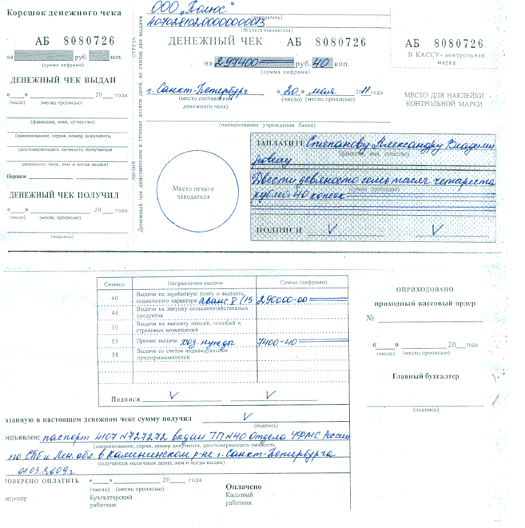 Корешок денежного чека
АБ 8080726
на руб. коп.
(сумма цифрами)
ДЕНЕЖНЫЙ ЧЕК ВЫДАН
« » 20 года
(число) (месяц прописью)
(фамилия, имя, отчество)
(наименование, серия, номер документа,
удостоверяющего личность получателя
денежного чека, кем и когда выдан)
Подписи
ДЕНЕЖНЫЙ ЧЕК ПОЛУЧИЛ
« » 20 года
(число) (месяц прописью)
(подпись)
ООО „Полюс"
(чекодателя)
ДЕНЕЖНЫЙ ЧЕК АБ 8080726
на 297400 руб. 40 коп.
(сумма цифрами)
г. Санкт-Петербург «20» мая 2011 года
(место составления денежного чека) (число) (месяц прописью)
(наименование учреждения банка)
Место печати
чекодателя
ЗАПЛАТИТЕ Степанову Александру Владими
ровичу
(фамилия, имя, отчество)
Двести девяносто семь тысяч четыреста
рублей 40 копеек
(сумма прописью)
ПОДПИСИ
АБ 8080726
В КАССУ - контрольная
марка
МЕСТО ДЛЯ НАКЛЕЙКИ
КОНТРОЛЬНОЙ МАРКИ
Символ Направление выдачи Сумма (цифрами)
40 Выдачи на заработную плату и выплаты социального характера аванс V/15 290000-00
46 Выдачи на закупку сельскохозяйственных продуктов
50 Выдачи на выплату пенсий, пособий и страховых возмещений
53 Прочие выдачи хоз. нужды 7400-40
58 Выдачи со счетов индивидуальных предпринимателей
Подписи
указанную в настоящем денежном чеке сумму получил
(подпись)
паспорт 4107 N727272 выдан ТП N40 Отдела УФМС России
(наименование, серия, номер документа, удостоверяющего личность,
по СПб и Лен. обл. в Калининском р-не г. Санкт-Петербурга
получателя наличных денег, кем и когда выдан)
01.03.2009г.
ПРОВЕРЕНО ОПЛАТИТЬ « » 20 года Оплачено
(число) (месяц прописью)
Бухгалтерский
работник
Кассовый
работник
ОПРИХОДОВАНО
приходный кассовый ордер
№
« » 20 года
(число) (месяц прописью)
Главный бухгалтер
(подпись)